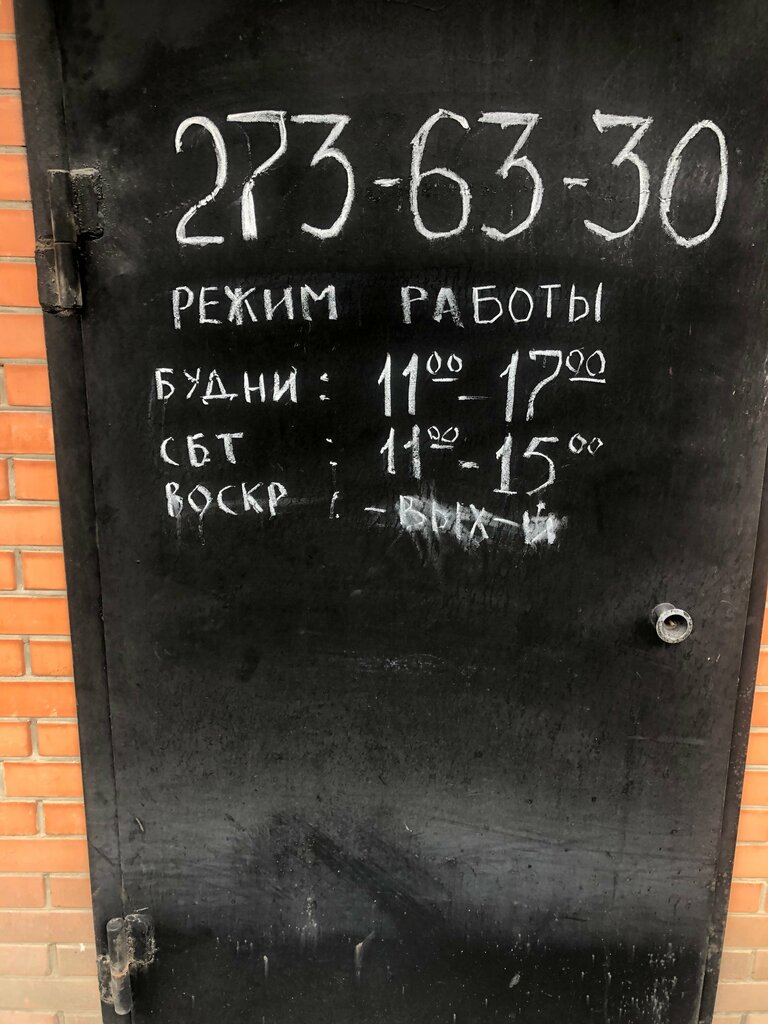 273-63-30
РЕЖИМ РАБОТЫ
БУДНИ : 11⁰⁰ - 17⁰⁰
СБТ : 11⁰⁰ - 15⁰⁰
ВОСКР : - ВЫХ-Й